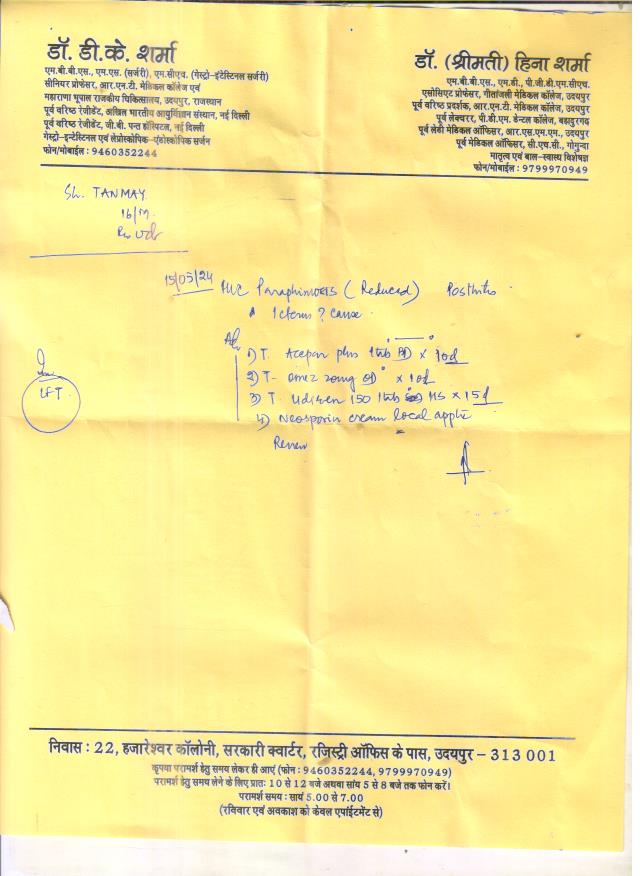 डॉ. डी.के. शर्मा
एम.बी.बी.एस., एम.एस. (सर्जरी), एम.सीएच. (गेस्ट्रो-इंटेस्टिनल सर्जरी)
सीनियर प्रोफेसर, आर.एन.टी. मेडिकल कॉलेज एवं
महाराणा भूपाल राजकीय चिकित्सालय, उदयपुर, राजस्थान
पूर्व वरिष्ठ रेजीडेंट, अखिल भारतीय आयुर्विज्ञान संस्थान, नई दिल्ली
पूर्व वरिष्ठ रेजीडेंट, जी.बी. पन्त हॉस्पिटल, नई दिल्ली
गेस्ट्रो-इन्टेस्टिनल एवं लेप्रोस्कोपिक-एंडोस्कोपिक सर्जन
फोन/मोबाईल : 9460352244
डॉ. (श्रीमती) हिना शर्मा
एम.बी.बी.एस., एम.डी., पी.जी.डी.एम.सीएच.
एसोसिएट प्रोफेसर, गीतांजली मेडिकल कॉलेज, उदयपुर
पूर्व वरिष्ठ प्रदर्शक, आर.एन.टी. मेडिकल कॉलेज, उदयपुर
पूर्व लेक्चरर, पी.डी.एम. डेन्टल कॉलेज, बहादुरगढ़
पूर्व लेडी मेडिकल ऑफिसर, आर.एस.एम.एम., उदयपुर
पूर्व मेडिकल ऑफिसर, सी.एच.सी., गोगुन्दा
मातृत्व एवं बाल-स्वास्थ्य विशेषज्ञ
फोन/मोबाईल : 9799970949
Sh. TANMAY
16/M
15/05/24 Paraphimosis (Reduced) Posthitis
Icterus ? cause
1) T. plus 1tab BD × 10d
2) T- Omez 20mg OD × 10d
3) T. Udiliven 150 1tab HS × 15d
4) Neosporin cream local applic
Review
LFT
निवास : 22, हजारेश्वर कॉलोनी, सरकारी क्वार्टर, रजिस्ट्री ऑफिस के पास, उदयपुर – 313 001
कृपया परामर्श हेतु समय लेकर ही आएं (फोन : 9460352244, 9799970949)
परामर्श हेतु समय लेने के लिए प्रातः 10 से 12 बजे अथवा सायं 5 से 8 बजे तक फोन करें।
परामर्श समय : सायं 5.00 से 7.00
(रविवार एवं अवकाश को केवल एपाईंटमेंट से)